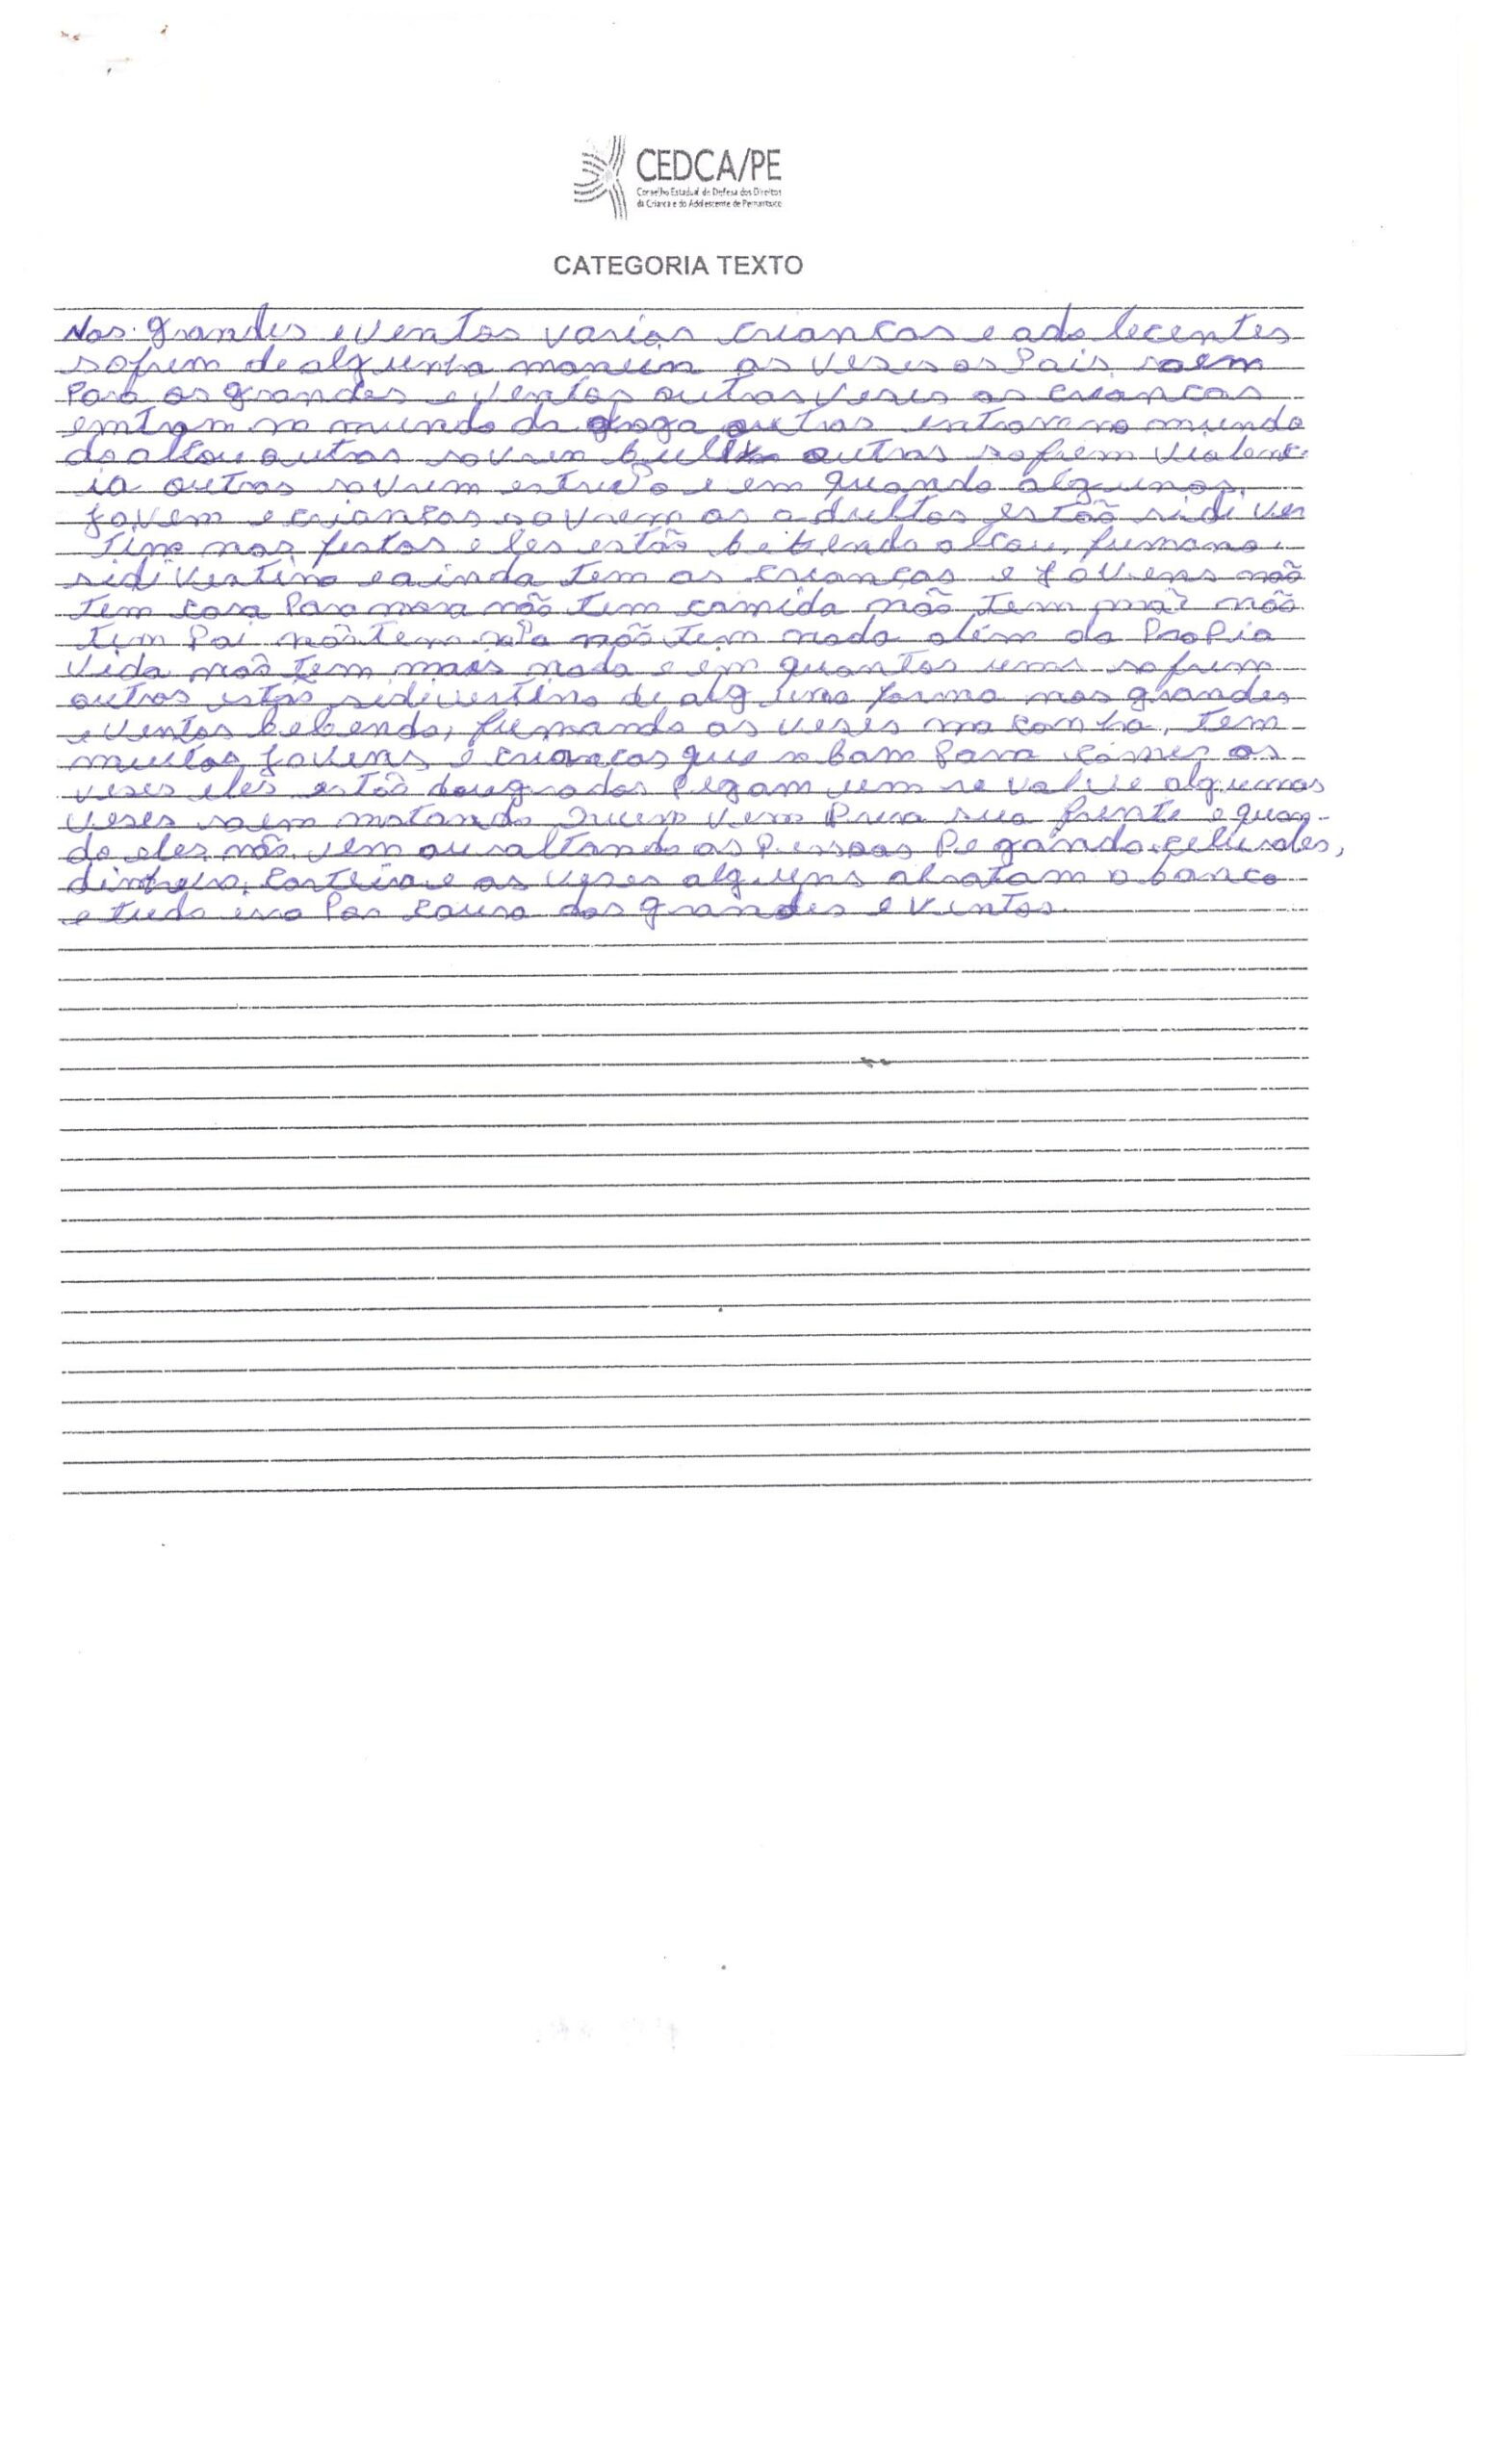 CEDCA/PE
Conselho Estadual de Defesa dos Direitos
da Criança e do Adolescente de Pernambuco
CATEGORIA TEXTO
Nos grandes eventos varias criancas e adolecentes
sofrem de alguma as veses os Pais saem
Para os grandes eventos outras veses as criancas
emtram no mundo da droga outras entram no mundo
do alcou outras sovrem outras sofrem violenc
ia outras sovrem e em quando algumas
jovem e crianças sovrem os adultos estão sidiver
tino nas festas eles estão bebendo alcou, fumano
sidivertino e ainda tem as crianças e jovens não
tem casa Para mora não tem comida não tem mãe não
tem Pai não tem não tem nada além da Propia
vida não tem mais nada e em quantos uns sofrem
outros estão sidivertino de alguma forma nos grandes
eventos bebendo, fumando as veses maconha, tem
muitos jovens e crianças que robam Para comer as
veses eles estão drougrados Pegam um revolve algumas
veses saem matando quem vem Prua sua frente e quan-
do eles não vem ausaltando as Pessoas Pegando celulales,
dinheiro, carteira e as veses alguns absatam o banco
e tudo isso Por causa dos grandes eventos.